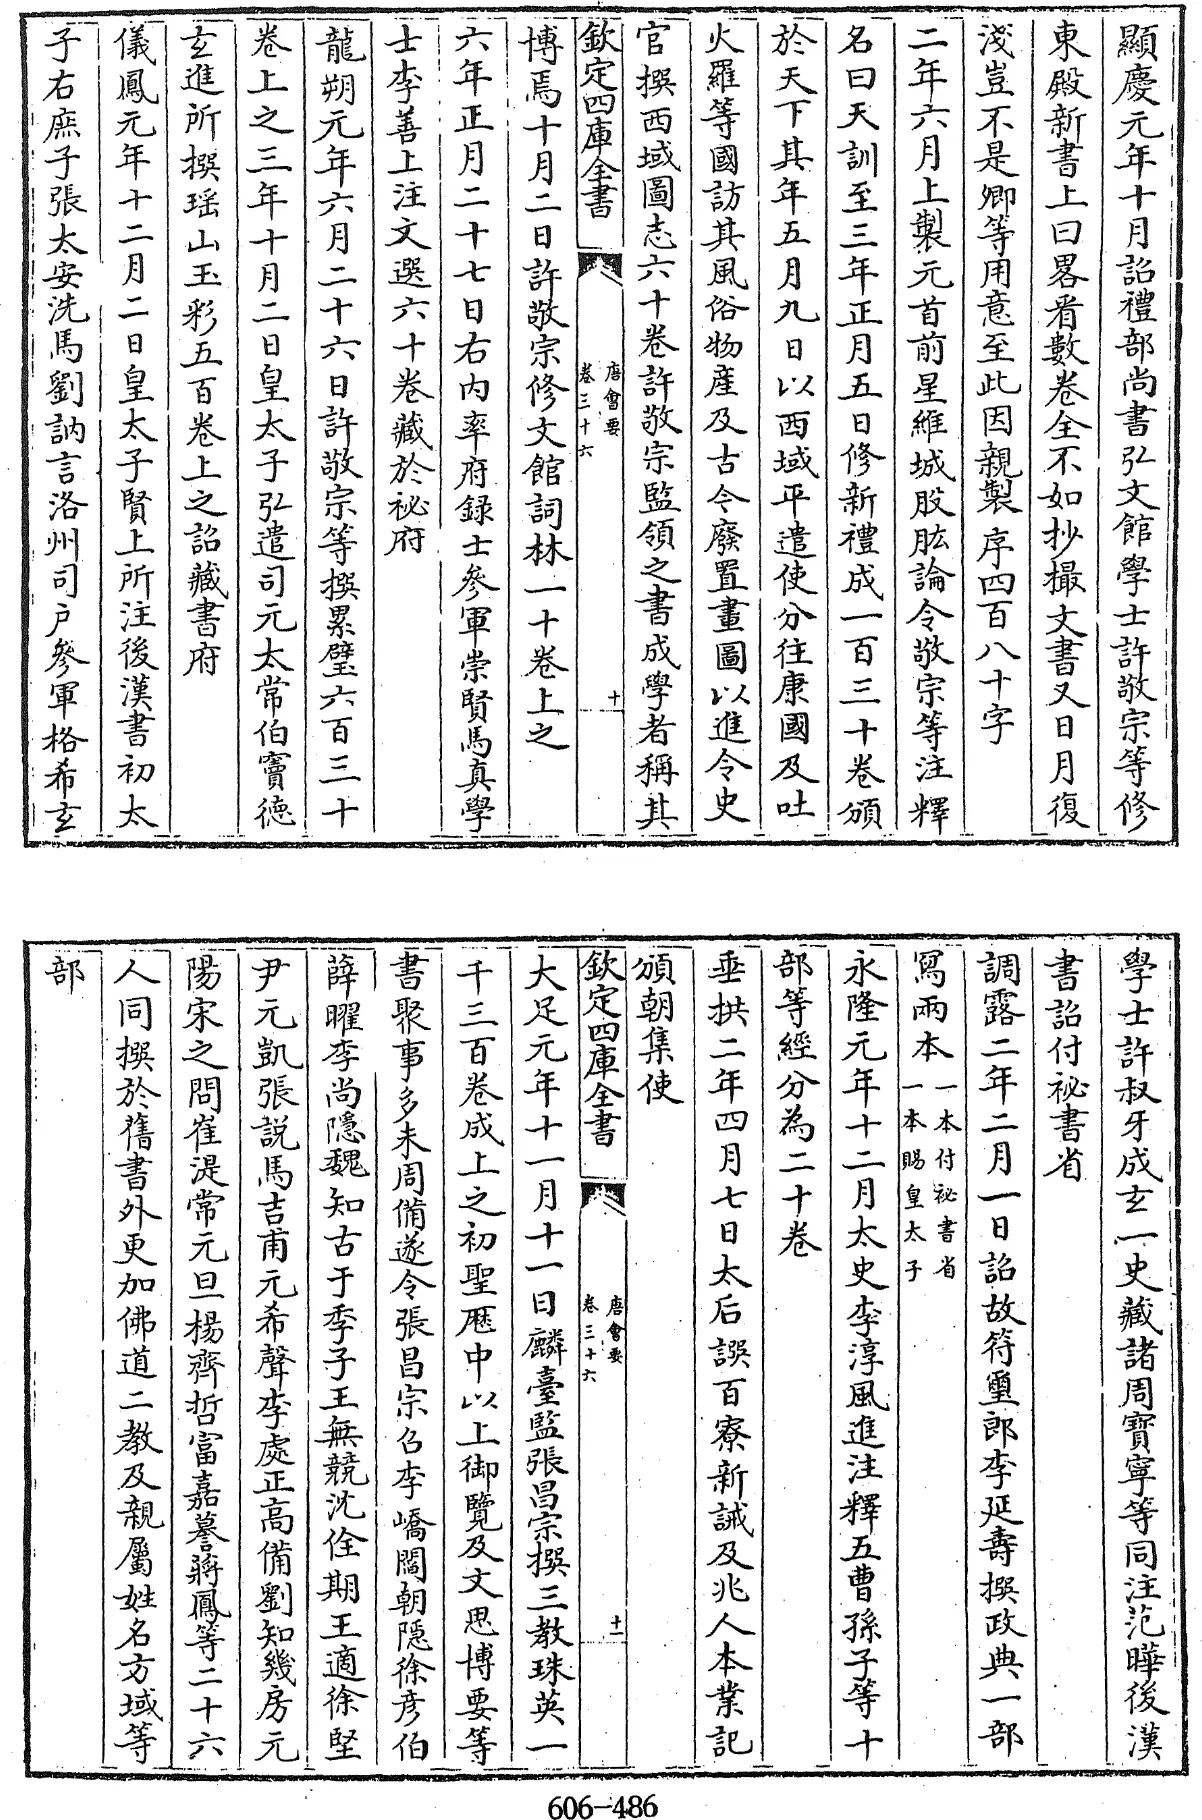 顯慶元年十月詔禮部尚書弘文館學士許敬宗等修
東殿新書上曰畧看數卷全不如抄撮文書又日月復
淺豈不是卿等用意至此因親製序四百八十字
二年六月上製元首前星維城股肱論令敬宗等注釋
名曰天訓至三年正月五日修新禮成一百三十卷頒
於天下其年五月九日以西域平遣使分往康國及吐
火羅等國訪其風俗物産及古今廢置畫圖以進令史
官撰西域圖志六十卷許敬宗監領之書成學者稱其
欽定四庫全書
唐會要
卷三十六
十
博焉十月二日許敬宗修文館詞林一十卷上之
六年正月二十七日右内率府録士參軍崇賢馬真學
士李善上注文選六十卷藏於祕府
龍朔元年六月二十六日許敬宗等撰累璧六百三十
卷上之三年十月二日皇太子弘遣司元太常伯竇德
玄進所撰瑶山玉彩五百卷上之詔藏書府
儀鳳元年十二月二日皇太子賢上所注後漢書初太
子右庶子張太安洗馬劉訥言洛州司户參軍格希玄
學士許叔牙成玄一史藏諸周寶寧等同注范曄後漢
書詔付祕書省
調露二年二月一日詔故符璽郎李延壽撰政典一部
寫兩本
一本付祕書省
一本賜皇太子
永隆元年十二月太史李淳風進注釋五曹孫子等十
部等經分為二十卷
垂拱二年四月七日太后譔百寮新誡及兆人本業記
頒朝集使
欽定四庫全書
唐會要
卷三十六
十一
大足元年十一月十一日麟臺監張昌宗撰三教珠英一
千三百卷成上之初聖厯中以上御覽及文思博要等
書聚事多未周備遂令張昌宗召李嶠閻朝隱徐彦伯
薛曜李尚隱魏知古于季子王無競沈佺期王適徐堅
尹元凱張説馬吉甫元希聲李處正高備劉知幾房元
陽宋之問崔湜常元旦楊齊哲富嘉謩蔣鳳等二十六
人同撰於舊書外更加佛道二教及親屬姓名方域等
部
606-486